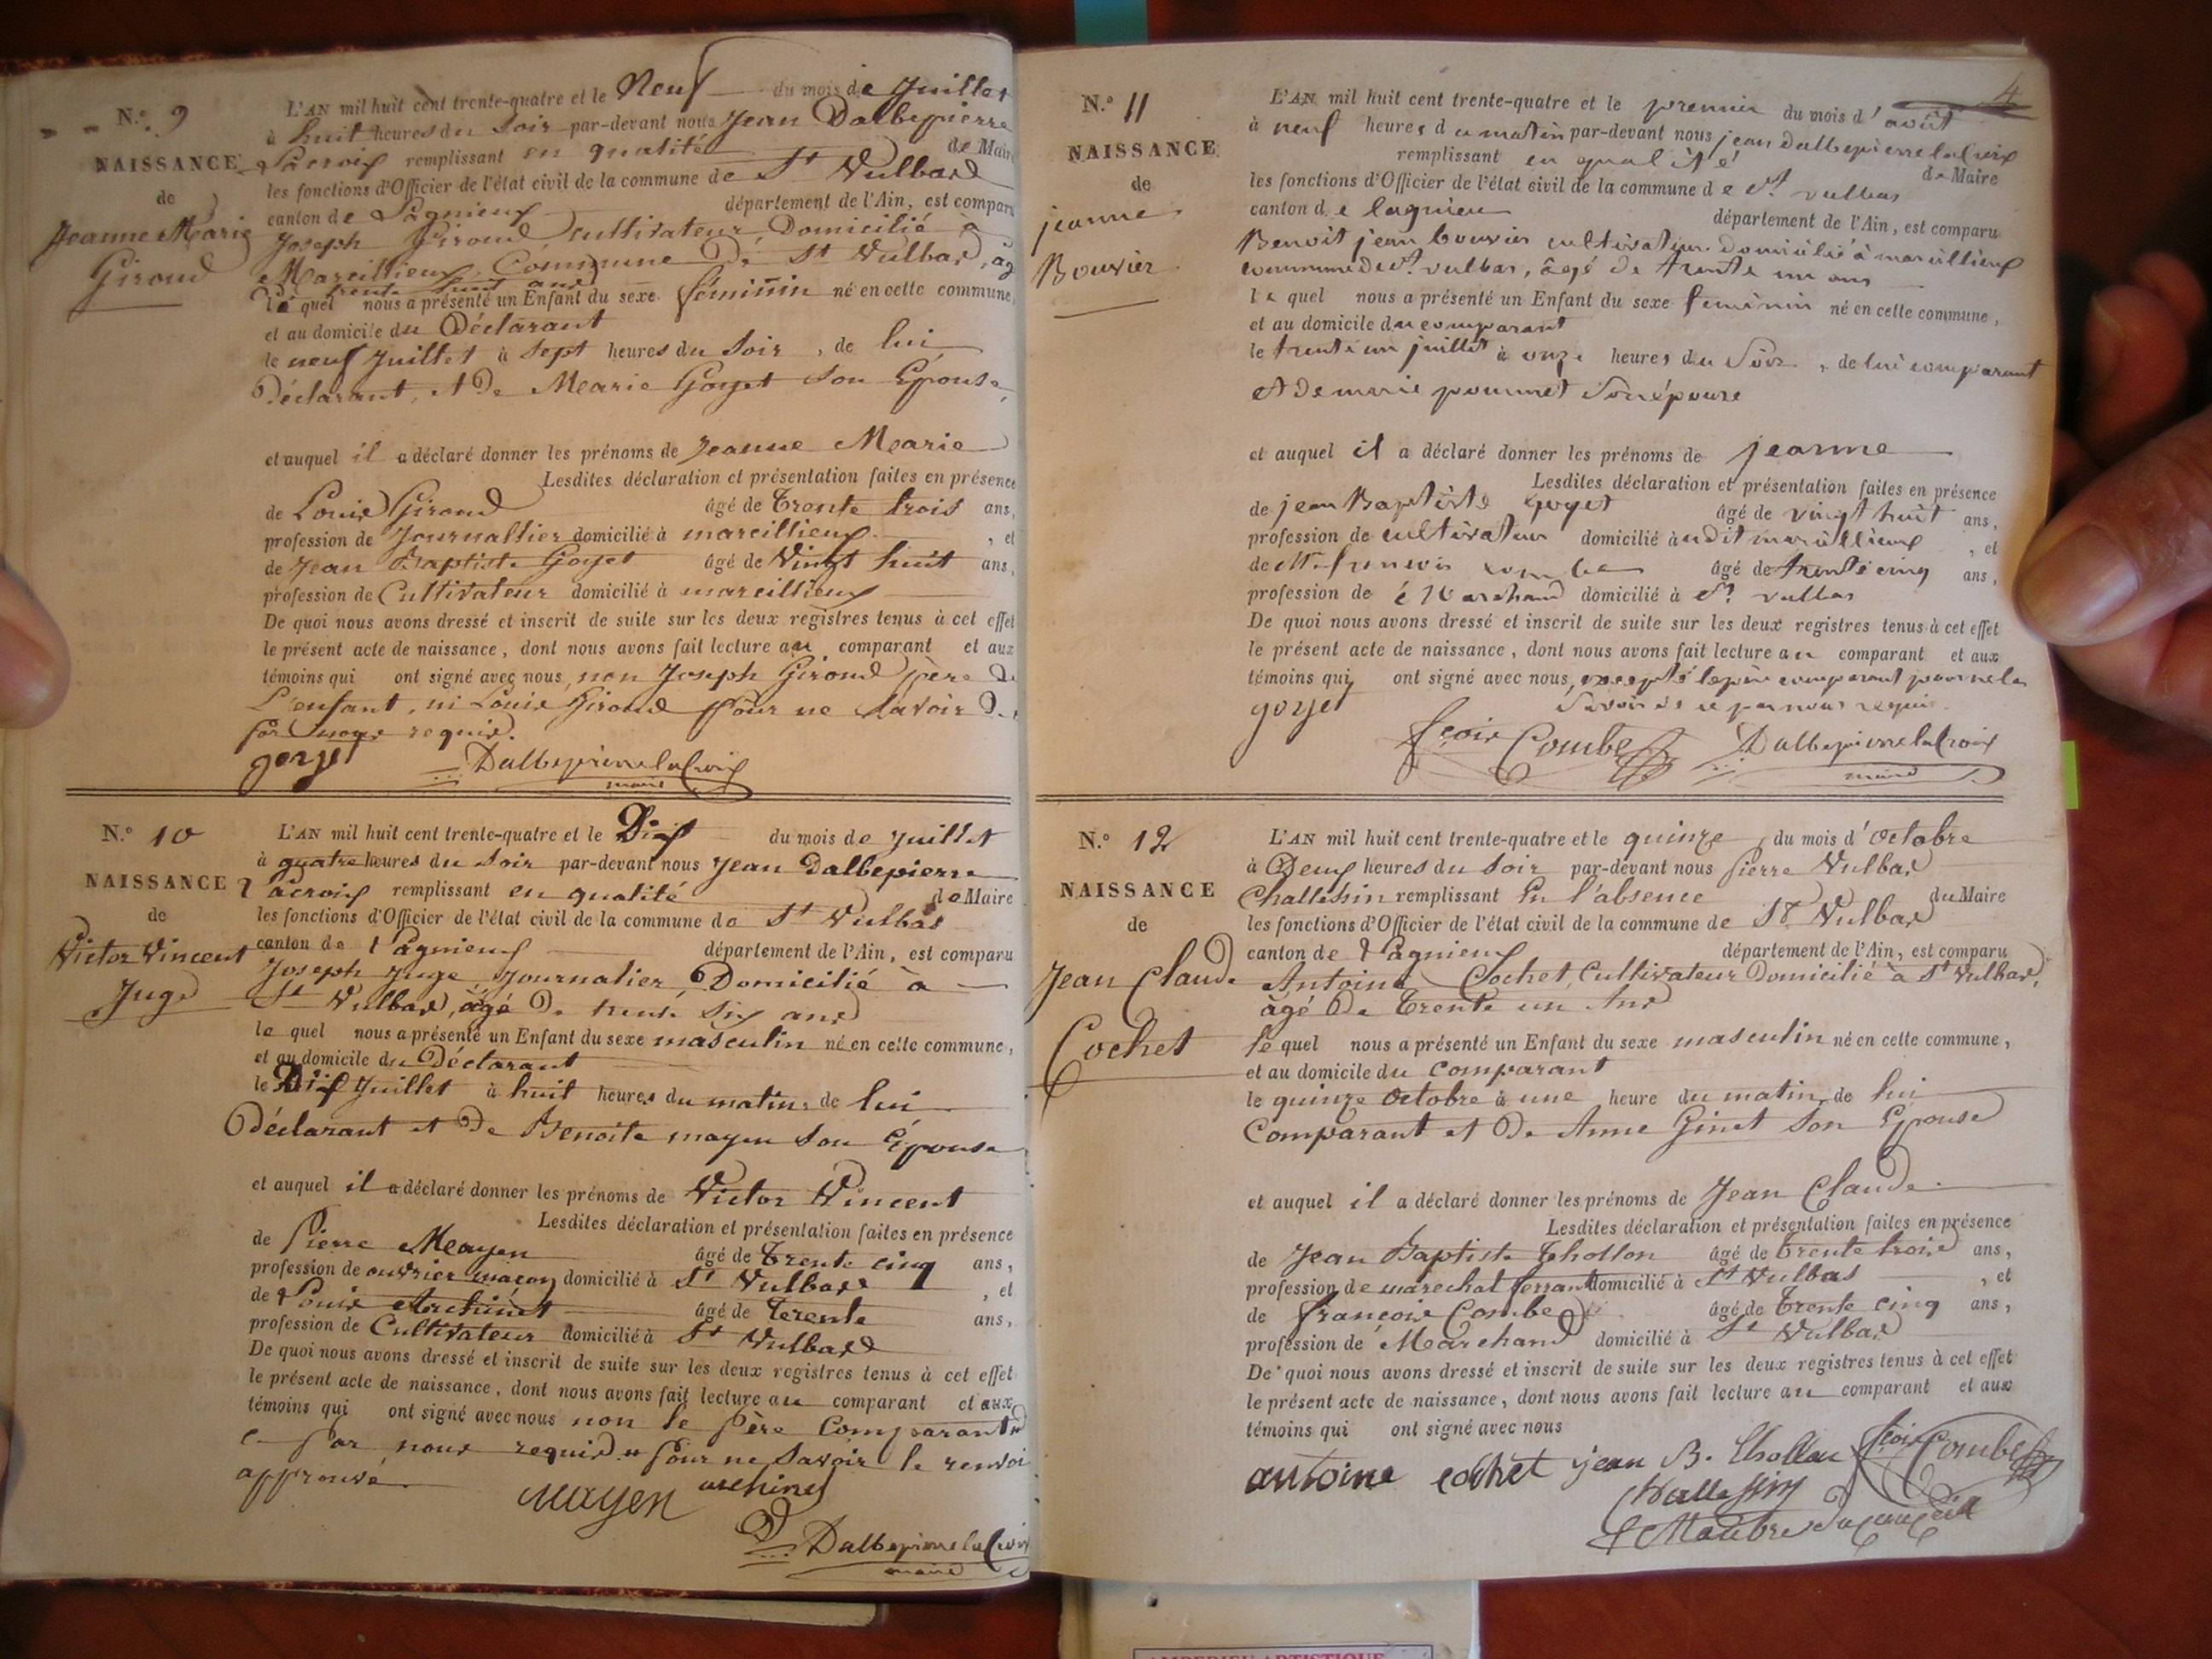 N.° 9
NAISSANCE
de
Jeanne Marie
Giroud
L'AN mil huit cent trente-quatre et le Neuf du mois de Juillet
à huit heures du Soir par-devant nous Jean Dalbepierre
Lacroix remplissant en qualité de Maire
les fonctions d'Officier de l'état civil de la commune de St Vulbas
canton de Lagnieux département de l'Ain, est comparu
Joseph Giroud, cultivateur, Domicilié à
Marcillieux, Commune De St Vulbas, ag
trente huit ans
le quel nous a présenté un Enfant du sexe féminin né en cette commune,
et au domicile du Déclarant
le neuf Juillet à Sept heures du Soir, de lui
Déclarant, et De Marie Goyet Son Epouse,
et auquel il a déclaré donner les prénoms de Jeanne Marie
Lesdites déclaration et présentation faites en présence
de Louis Giroud âgé de Trente trois ans,
profession de Journallier domicilié à marcillieux, et
de Jean Baptiste Goyet âgé de Vingt huit ans,
profession de Cultivateur domicilié à marcillieux
De quoi nous avons dressé et inscrit de suite sur les deux registres tenus à cet effet
le présent acte de naissance, dont nous avons fait lecture au comparant et aux
témoins qui ont signé avec nous, non Joseph Giroud père De
L'enfant, ni Louis Giroud pour ne Savoir De
par nous requis.
goyet Dalbepierre lacroix
maire
N.° 10
NAISSANCE
de
Victor Vincent
Juge
L'AN mil huit cent trente-quatre et le Dix du mois de Juillet
à quatre heures du Soir par-devant nous Jean Dalbepierre
Lacroix remplissant en qualité de Maire
les fonctions d'Officier de l'état civil de la commune de St Vulbas
canton de Lagnieux département de l'Ain, est comparu
Joseph Juge, Journalier, Domicilié à
St Vulbas, âgé De trente Six ans
le quel nous a présenté un Enfant du sexe masculin né en cette commune,
et au domicile du Déclarant
le Dix Juillet à huit heures du matin, de lui
Déclarant et De Benoite mayen Son Epouse
et auquel il a déclaré donner les prénoms de Victor Vincent
Lesdites déclaration et présentation faites en présence
de Pierre Mayen âgé de Trente cinq ans,
profession de ouvrier maçon domicilié à St Vulbas, et
de Louis Archinet âgé de Trente ans,
profession de Cultivateur domicilié à St Vulbas
De quoi nous avons dressé et inscrit de suite sur les deux registres tenus à cet effet
le présent acte de naissance, dont nous avons fait lecture au comparant et aux
témoins qui ont signé avec nous non le Père Comparant
par nous requis pour ne Savoir le renvoi
approuvé
mayen archinet
Dalbepierre lacroix
maire
4
N.° 11
NAISSANCE
de
jeanne
Bouvier
L'AN mil huit cent trente-quatre et le premier du mois d'août
à neuf heures du matin par-devant nous jean dalbepierre lacroix
remplissant en qualité de Maire
les fonctions d'Officier de l'état civil de la commune de St. vulbas
canton de lagnieu département de l'Ain, est comparu
Benoit jean bouvier cultivateur domicilié à marcillieux
commune de st. vulbas, âgé de trente un ans
le quel nous a présenté un Enfant du sexe feminin né en cette commune,
et au domicile du comparant
le trente un juillet à onze heures du Soir, de lui comparant
et de marie pommet Son épouse
et auquel il a déclaré donner les prénoms de jeanne
Lesdites déclaration et présentation faites en présence
de jean Baptiste goyet âgé de vingt huit ans,
profession de cultivateur domicilié audit marcillieux, et
de françois combe âgé de trente cinq ans,
profession de Marchand domicilié à St. vulbas
De quoi nous avons dressé et inscrit de suite sur les deux registres tenus à cet effet
le présent acte de naissance, dont nous avons fait lecture au comparant et aux
témoins qui ont signé avec nous, excepté le père comparant pour ne le
Savoir de ce par nous requis.
goyet fçois Combe Dalbepierre lacroix
maire
N.° 12
NAISSANCE
de
Jean Claude
Cochet
L'AN mil huit cent trente-quatre et le quinze du mois d'Octobre
à Deux heures du Soir par-devant nous Pierre Vulbas
Challessin remplissant En l'absence du Maire
les fonctions d'Officier de l'état civil de la commune de St Vulbas
canton de Lagnieux département de l'Ain, est comparu
Antoine Cochet, Cultivateur Domicilié à St Vulbas,
âgé De Trente un Ans
le quel nous a présenté un Enfant du sexe masculin né en cette commune,
et au domicile du Comparant
le quinze Octobre à une heure du matin, de lui
Comparant et De Anne Ginet Son Epouse
et auquel il a déclaré donner les prénoms de Jean Claude
Lesdites déclaration et présentation faites en présence
de Jean Baptiste Thollon âgé de Trente trois ans,
profession de marechal ferrant domicilié à St Vulbas, et
de françois Combe âgé de Trente cinq ans,
profession de Marchand domicilié à St Vulbas
De quoi nous avons dressé et inscrit de suite sur les deux registres tenus à cet effet
le présent acte de naissance, dont nous avons fait lecture au comparant et aux
témoins qui ont signé avec nous
antoine cochet jean B. thollon fçois Combe
Challessin
AMBERIEU ARTISTIQUE